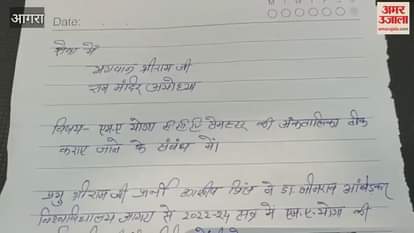 आगरा
अमर उजाला
amarujala.com
Date:
सेवा में
भगवान श्रीराम जी
राम मंदिर अयोध्या
विषय- एम.ए योगा सेमेस्टर की अंकतालिका ठीक
कराए जाने के संबंध में।
प्रभु श्रीराम जी प्रार्थी प्रिंस ने डा. भीमराव आंबेडकर
विश्वविद्यालय आगरा से 2022-24 सत्र में एम.ए-योगा की